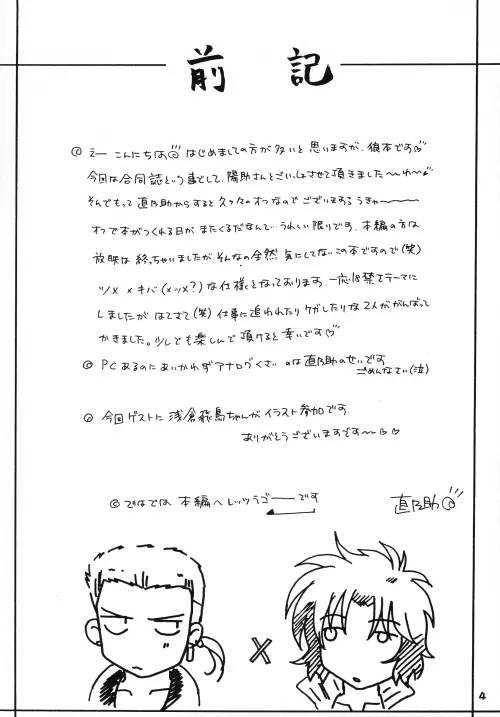 前記
◎ えー こんにちは はじめましての方が多いと思いますが、狼本です
今回は合同誌という事でして、陽助さんとごいっしょさせて頂きました〜わ〜
そんでもって直乃助からすると久々のオフなのでございまするうきゃ〜
オフで本がつくれる日がまたくるだなんて…うれしい限りです。本編の方は
放映は終っちゃいましたがそんなの全然気にしてないこの本ですので(笑)
ツメ×キバ(×ツメ?)な仕様となっております。一応18禁をテーマに
しましたが はてさて(笑) 仕事に追われたりケガしたりな2人ががんばって
かきました。少しでも楽しんで頂けると幸いです
◎ PCあるのにあいかわらずアナログくさいのは直乃助のせいです
ごめんなさい(泣)
◎ 今回ゲストに浅倉飛鳥ちゃんがイラスト参加です
ありがとうございますです〜
◎ ではでは 本編へレッツラゴーーです
直乃助
×
4